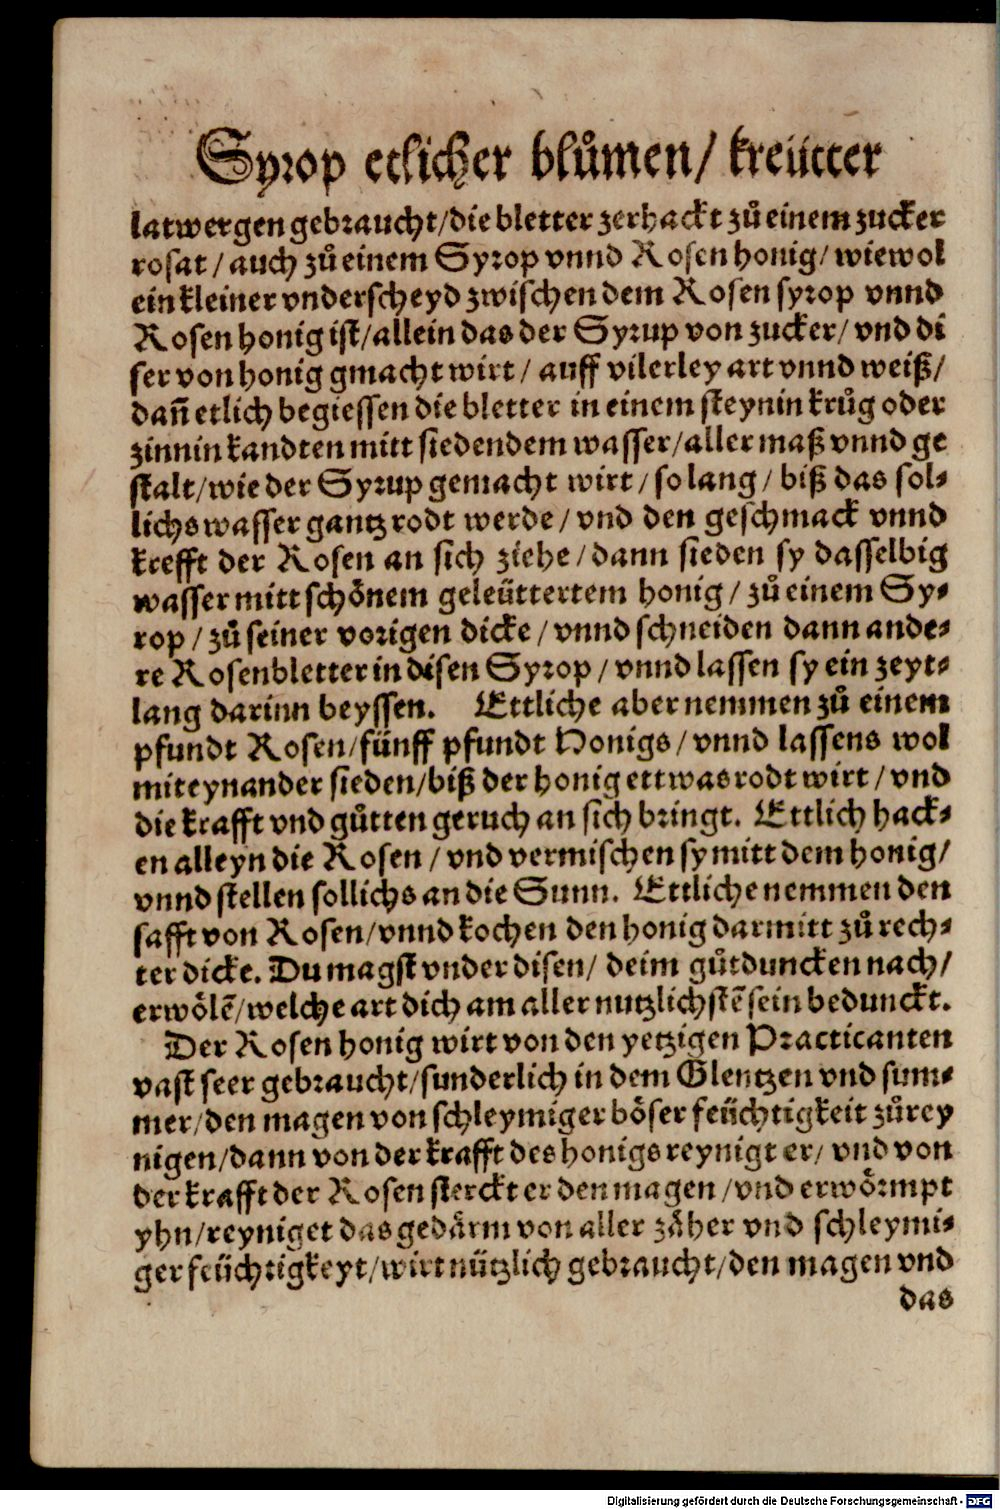 Syrop etlicher blůmen/ kreütter
latwergen gebraucht/die bletter zerhackt zů einem zucker
rosat / auch zů einem Syrop vnnd Rosen honig/ wiewol
ein kleiner vnderscheyd zwischen dem Rosen syrop vnnd
Rosen honig ist/allein das der Syrup von zucker/ vnd di
ser von honig gmacht wirt / auff vilerley art vnnd weiß/
dañ etlich begiessen die bletter in einem steynin krůg oder
zinnin kandten mitt siedendem wasser/aller maß vnnd ge
stalt/wie der Syrup gemacht wirt / so lang / biß das sol⸗
lichs wasser gantz rodt werde / vnd den geschmack vnnd
krefft der Rosen an sich ziehe / dann sieden sy dasselbig
wasser mitt schönem geleüttertem honig / zů einem Sy⸗
rop / zů seiner vorigen dicke / vnnd schneiden dann ande⸗
re Rosenbletter in disen Syrop / vnnd lassen sy ein zeyt⸗
lang darinn beyssen. Ettliche aber nemmen zů einem
pfundt Rosen/fünff pfundt Honigs / vnnd lassens wol
miteynander sieden/biß der honig ettwas rodt wirt / vnd
die krafft vnd gůtten geruch an sich bringt. Ettlich hack⸗
en alleyn die Rosen / vnd vermischen sy mitt dem honig/
vnnd stellen sollichs an die Sunn. Ettliche nemmen den
safft von Rosen/vnnd kochen den honig darmitt zů rech⸗
ter dicke. Du magst vnder disen/ deim gůtduncken nach/
erwölẽ/welche art dich am aller nutzlichstẽ sein bedunckt.
Der Rosen honig wirt von den yetzigen Practicanten
vast seer gebraucht/sunderlich in dem Glentzen vnd sum⸗
mer/den magen von schleymiger böser feüchtigkeit zůrey
nigen/dann von der krafft des honigs reynigt er/ vnd von
der krafft der Rosen sterckt er den magen /vnd erwörmpt
yhn/reyniget das gedärm von aller zäher vnd schleymi⸗
ger feüchtigkeyt/wirt nützlich gebraucht/den magen vnd
das
Digitalisierung gefördert durch die Deutsche Forschungsgemeinschaft - DFG